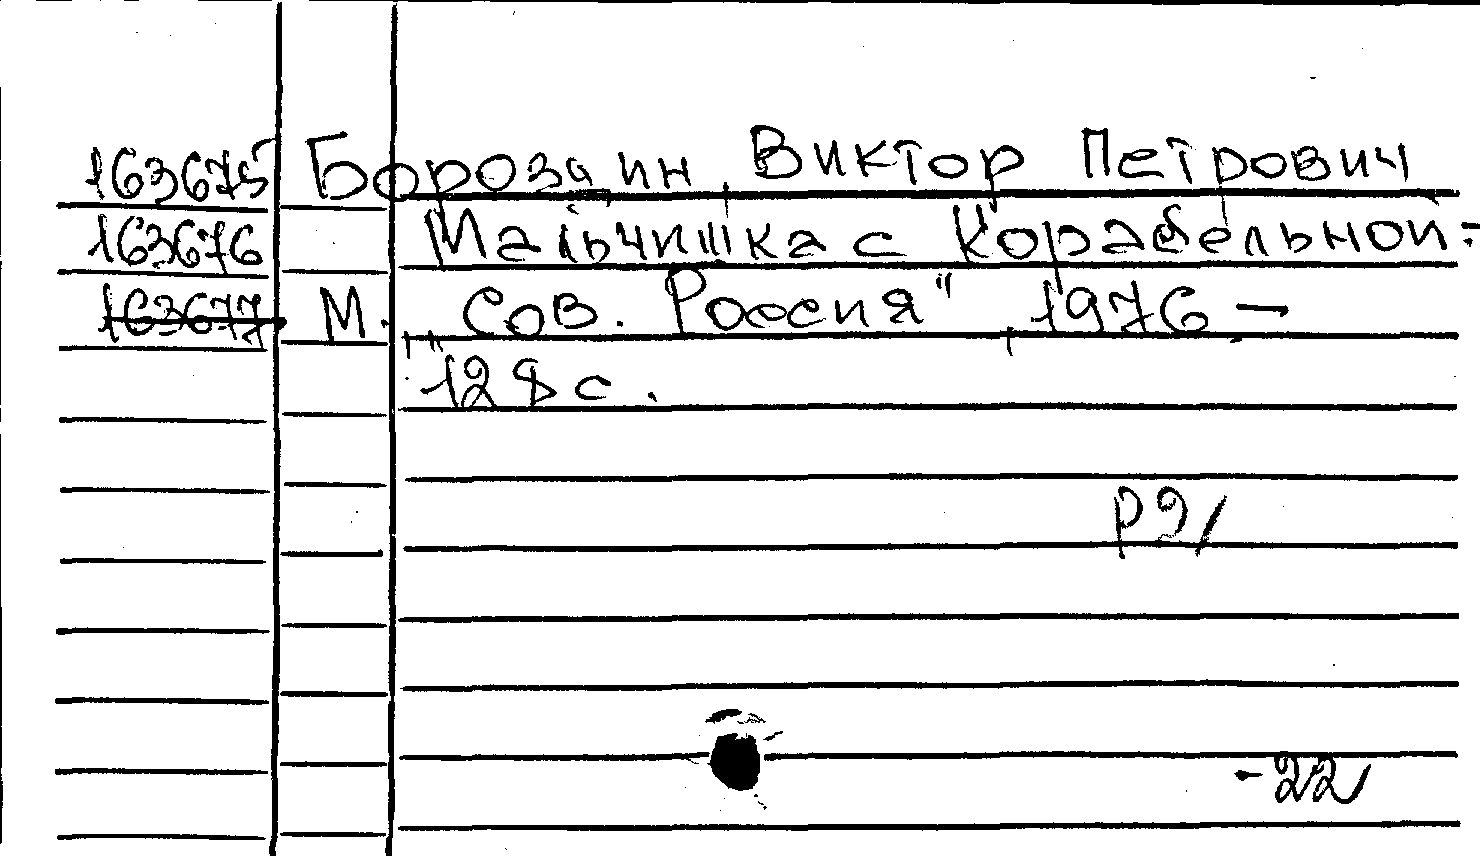 163675 Бороздин, Виктор Петрович
163676 Мальчишка с Корабельной:
163677 М., "Сов. Россия", 1976 –
128 с.
Р2
-22